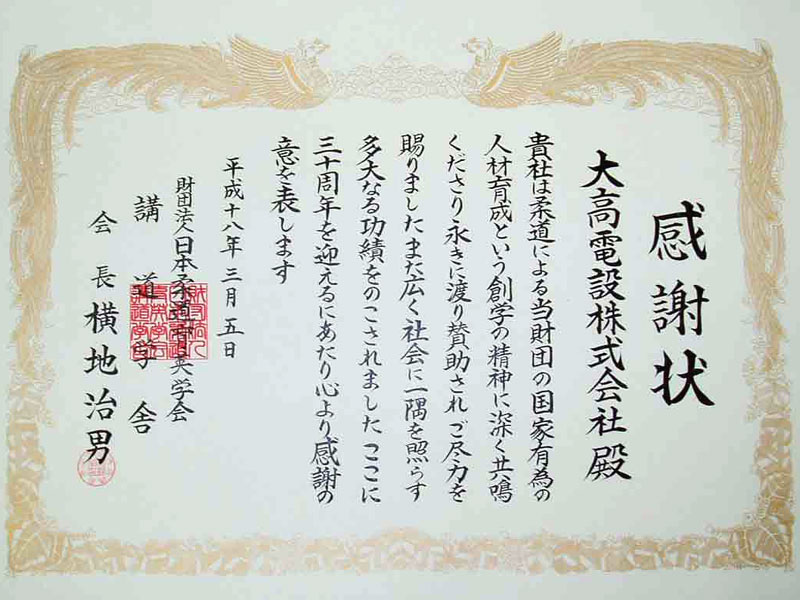 感謝状
大高電設株式会社 殿
貴社は柔道による当財団の国家有為の
人材育成という創学の精神に深く共鳴
くださり永きに渡り賛助されご尽力を
賜りましたまた広く社会に一隅を照らす
多大なる功績をのこされましたここに
三十周年を迎えるにあたり心より感謝の
意を表します
平成十八年三月五日
財団法人日本柔道育英学会
講道学舎
会長 横地治男